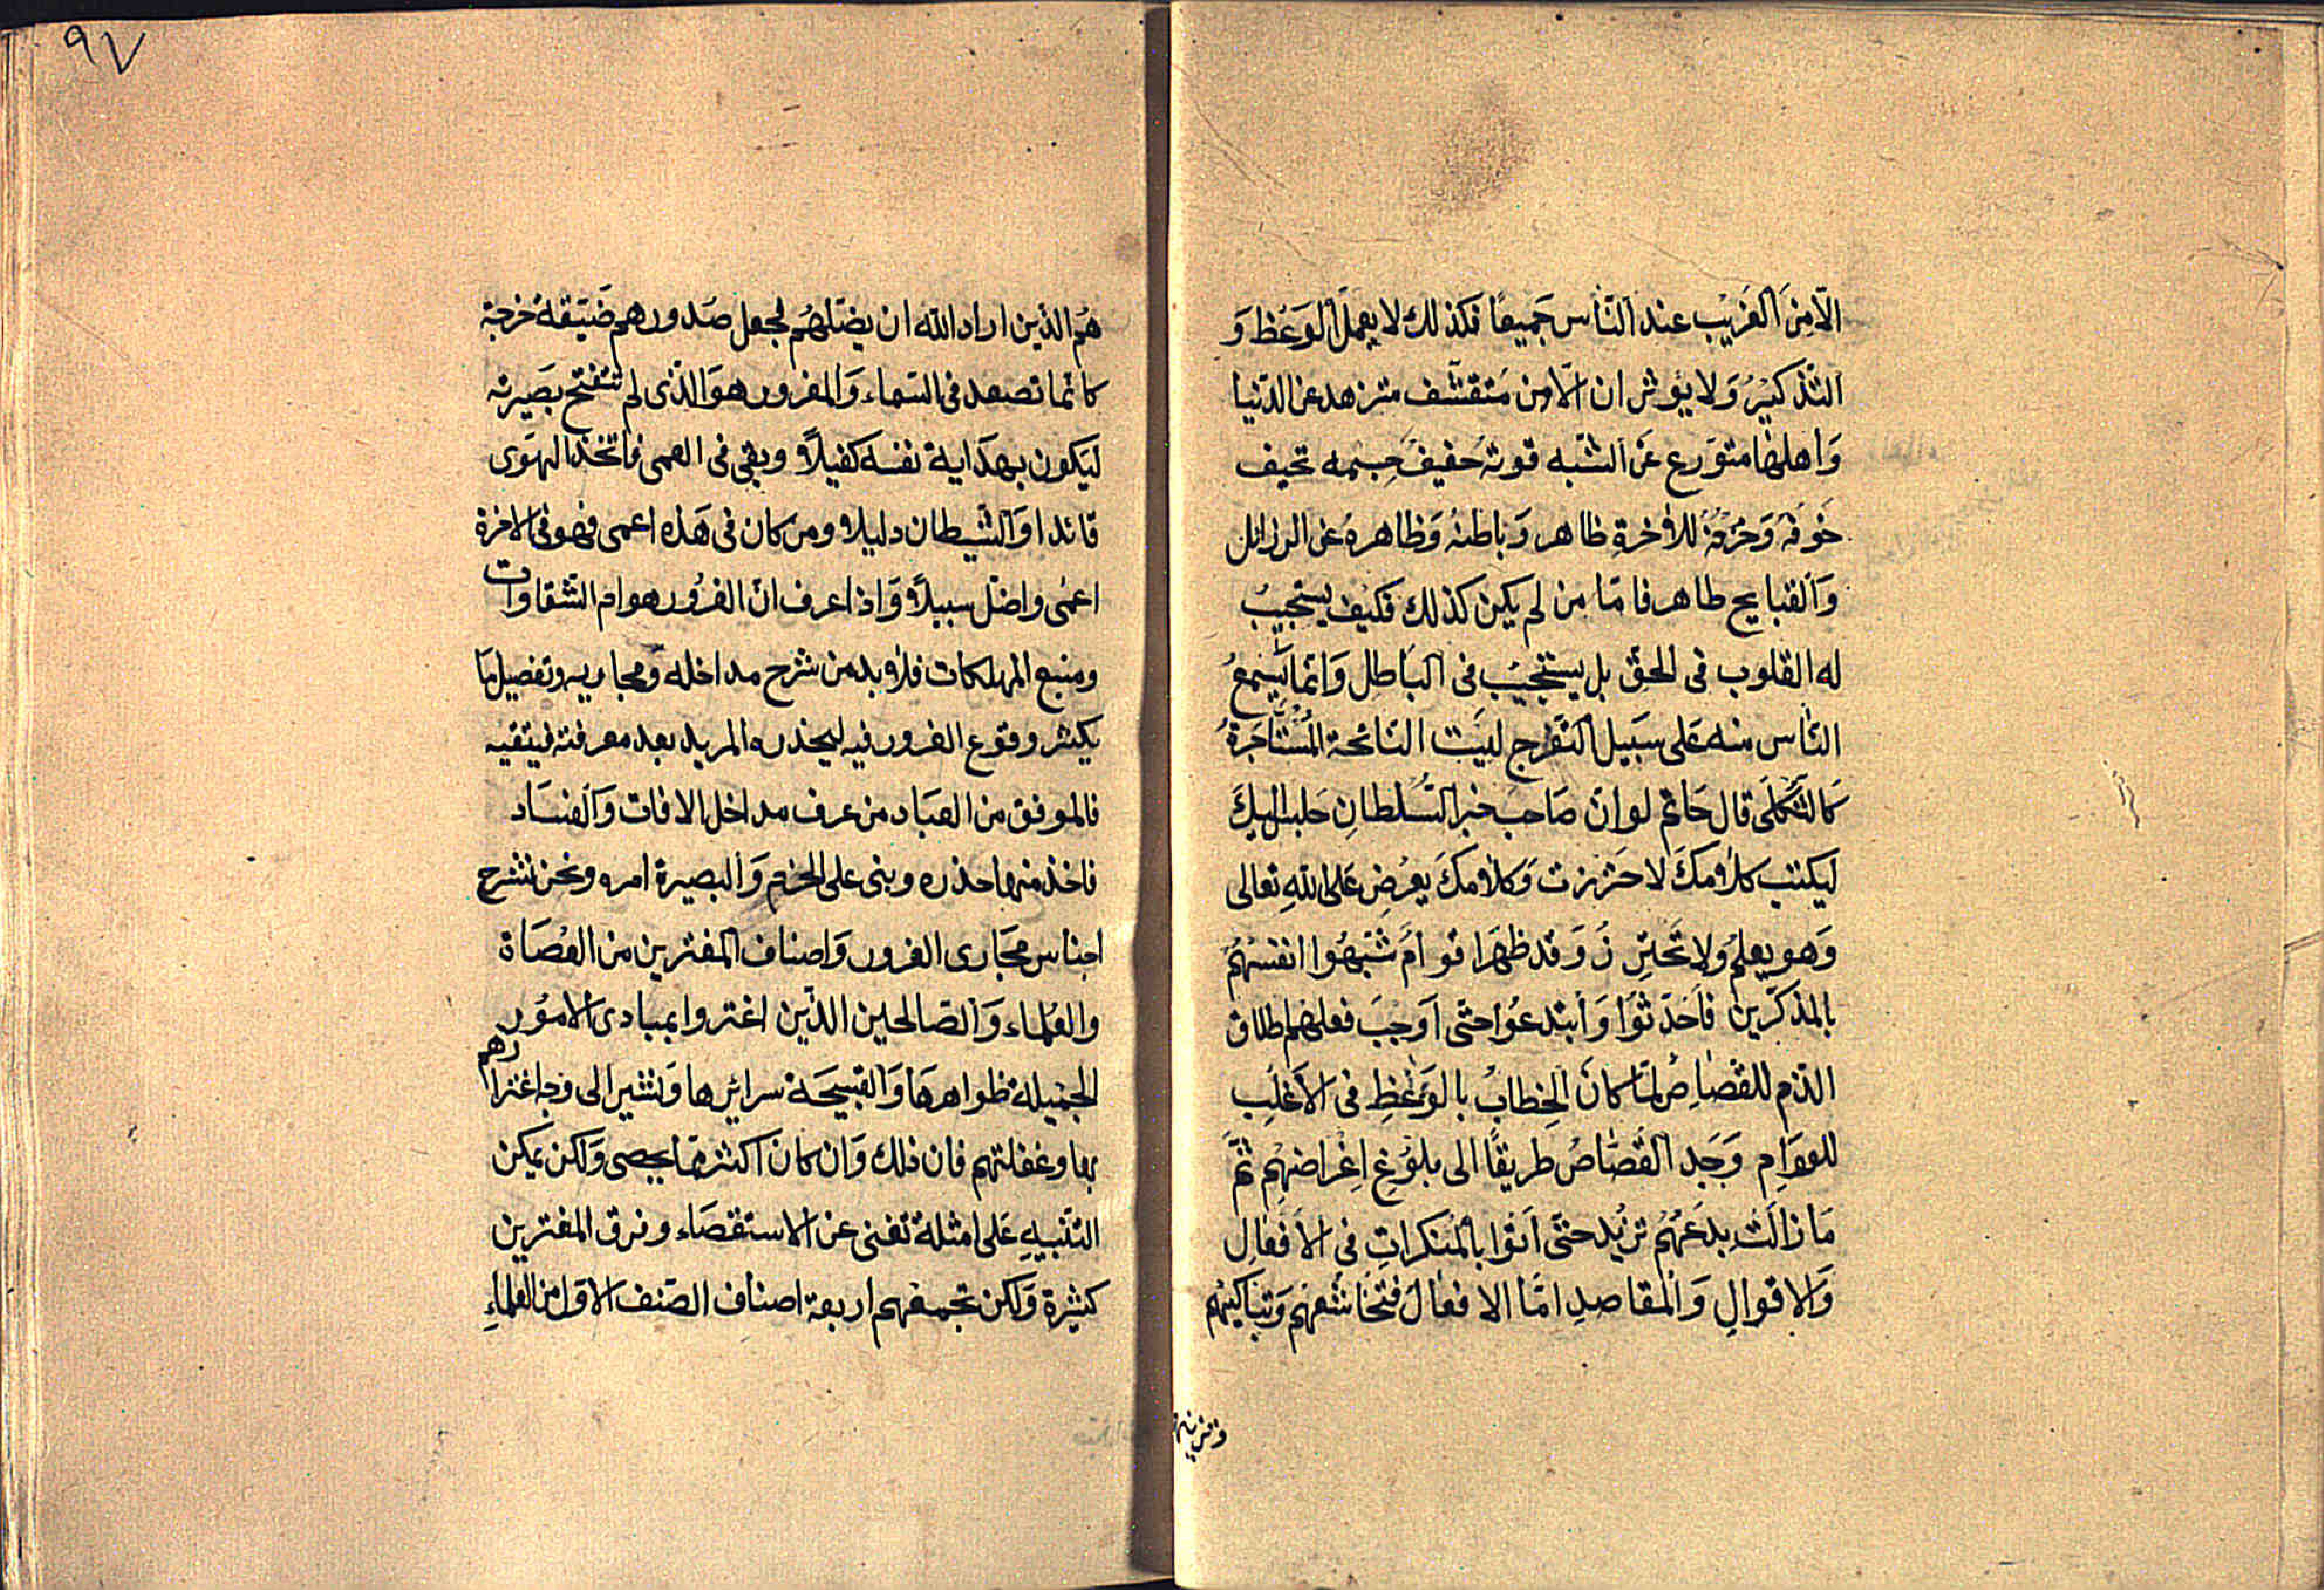 الّامِنَ الغَرِيْب عند النّاس جَميعًا فكذلك لا يعملُ الوَعْظ وَ
التّذكيْرُ وَلا يؤثر ان الّامن مَتقشّف متزهد عن الدّنيا
وَاهلهٰا متوَرع عَن الشّبه قوتهُ حَفيفُ جِسمه نحيف
خَوفهُ وَحُرقهُ للاٰخرةِ ظاهر وَبٰاطنهُ وَظاهرهُ عن الرذائل
وَالقبايح طاهر فامّا من لم يكن كذلك فكيف يستجيبُ
له القلوب فى الحقّ بل يستجيبُ فى البَاطل وَانّما يَسْمَعُ
النّاس منه عَلى سَبيل التّفرج لبيَت النّائحة المُسْتأجَرة
كالثّكلَى قال حَاتم لو انّ صَاحبَ خبر السُّلطانِ جلس اليكَ
ليكتب كلامَكَ لاحترزت وَكلامكَ يعرُض عَلى اللهِ تعالى
وَهو يعلم ولا تحترِ زُ وَقد ظهَرَ اقوامٌ شَبّهُوا انفسَهُم
بالمذكّرين فاَحدَثوا وَابتدعُوا حتّى اَوجَبَ فعلهُم اطلاق
الذم للقصّاص لمّا كانَ الخِطابُ بالوَعْظِ فى الاَغلَبِ
للعوَامِ وَجَد القُصّاصُ طريقًا الى بلوْغِ اغراضهِم ثمَّ
مَا زالتْ بدعَهُم تزيْد حتّى اَتوا بالمنكراتِ فى الاَفعٰالِ
وَالاقوالِ وَالمقاصدِ امّا الافعٰال فتخاشُعهُم وَتباكيْهم
وتزيينهم
٩٧
هُم الذين اراد الله ان يضلّهُم لجعل صَدورهم ضَيّقةً حرجة
كانّما تصعد فى السّماء وَالمغرور هوَ الّذى لم تنفتح بصَيرته
ليَكون بهدَاية نفسه كفيلاً وبقى فى العمى فاتخذ الهَوى
قائدا وَالشّيطان دليلا ومن كان فى هَذه اعمى فهو فى الاخرة
اعمٰى واضلّ سبيلاً وَاذا عرف انّ الغرُور هو ام الشّقاوات
ومنبع المهلكات فلا بد من شرح مداخله وَمجاريه وتفصيل مَا
يكثر وقوع الغرور فيه ليحذره المريد بعد معرفته فيتقيه
فالموفق من العبَاد من عرف مداخل الافات وَالفسَاد
فاخذ منها حذره وبنى على الحزم وَالبصيرة امره ونحن نشرح
اجناس مجَارى الغرور وَاصناف المغترين من العُصَاة
والعُلماء وَالصّالحين الذّين اغتروا بمبادى الامُور
الجميلة ظواهرهَا وَالقبيحَة سرائرها وَنشير الى وجه اغترارهم
بها وغفلتهم فان ذلك وَان كان اكثر ممّا يحصى وَلكن يمكن
التّنبيهِ عَلى امثلة تغنى عن الاستقصَاء وفرق المغترين
كثيرة وَلكن تجمعهم اربعة اصناف الصّنف الاول من العلماءِ